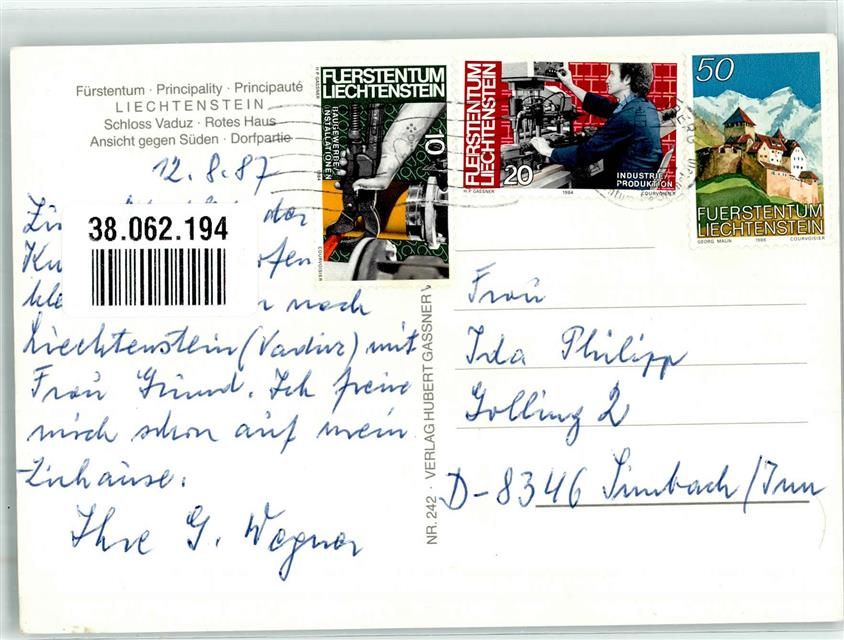 Fürstentum · Principality · Principauté
LIECHTENSTEIN
Schloss Vaduz · Rotes Haus
Ansicht gegen Süden · Dorfpartie
12.8.87
der
38.062.194
nach
Liechtenstein (Vaduz) mit
Frau Gründ. Ich freue
mich schon auf mein
Zuhause.
Ihre G. Wegner
NR. 242 · VERLAG HUBERT GASSNER V
H.P. GASSNER
FUERSTENTUM
LIECHTENSTEIN
BAUGEWERBE
INSTALLATIONEN
10
1984
COURVOISIER
FUERSTENTUM
LIECHTENSTEIN
20
INDUSTRIE-
PRODUKTION
H.P. GASSNER 1984 COURVOISIER
50
FUERSTENTUM
LIECHTENSTEIN
GEORG MALIN 1986 COURVOISIER
Frau
Ida Philipp
Golling 2
D-8346 Simbach/Inn